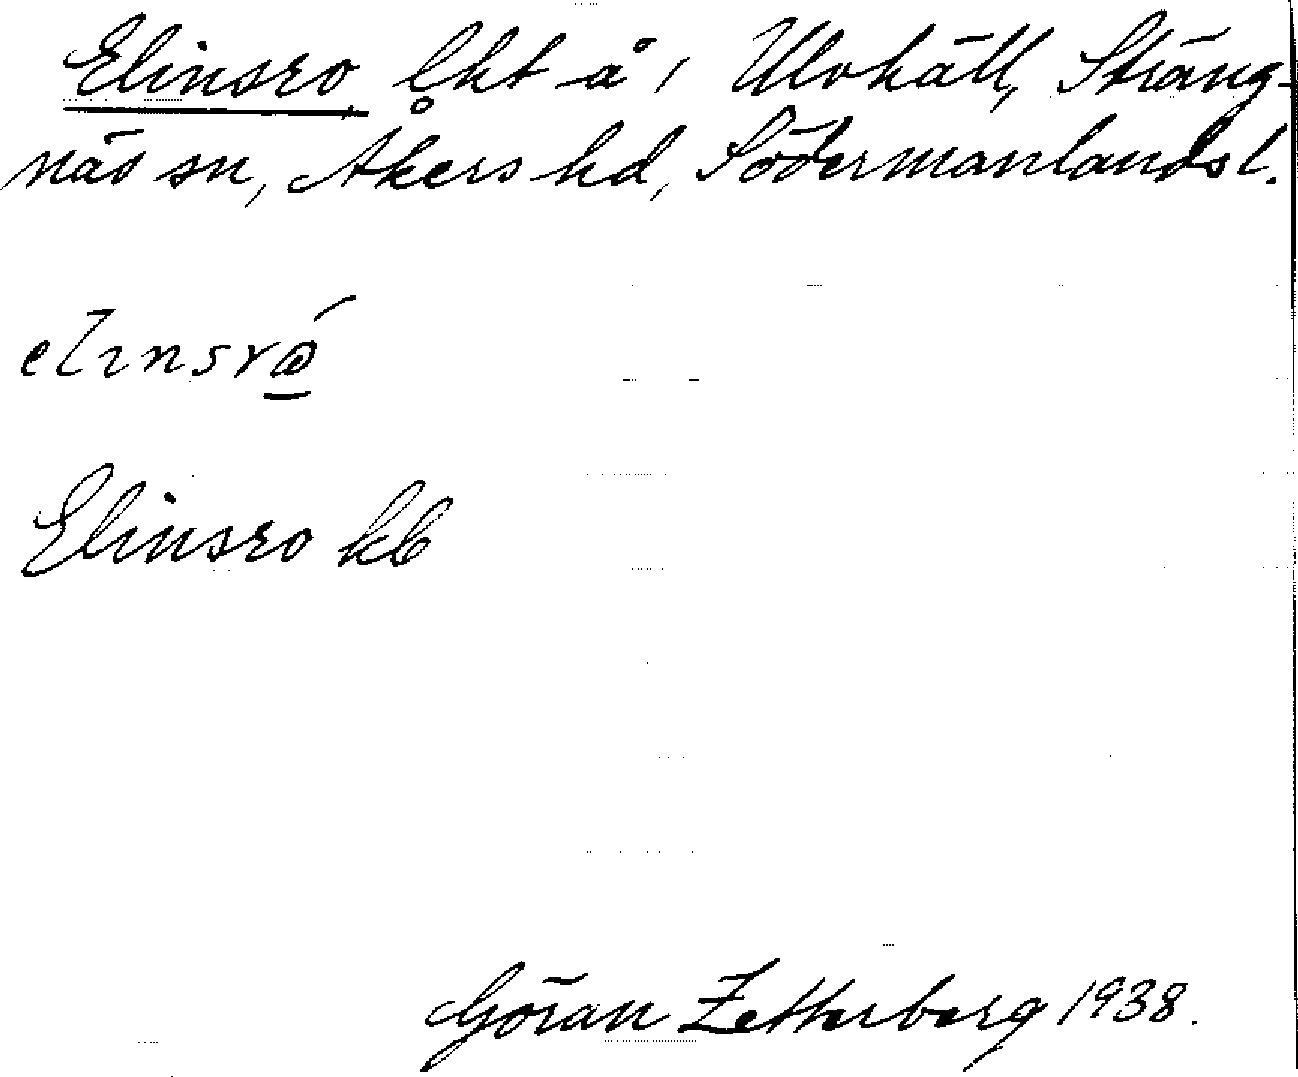 Elinsro lht å 1 Ulvhäll, Sträng-
näs sn, Åkers hd, Södermanlands l.
Elinsro kb
Göran Zetterberg 1938.